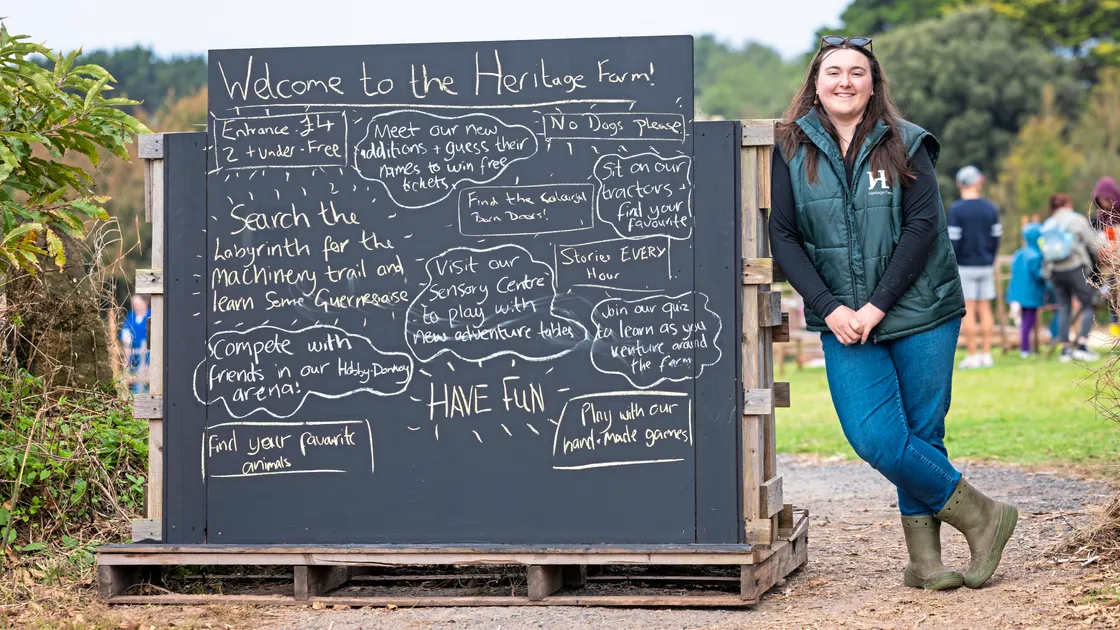 Welcome to the Heritage Farm!
Entrance · £4
2 + under · Free
Meet our new
additions + guess their
names to win free
tickets
No Dogs please
Sit on our
tractors +
find your
favourite
Find the
Barn Doors!
Search the
Labyrinth for the
machinery trail and
learn some Guernesiaise
Visit our
Sensory Centre
to play with
new adventure tables
Stories EVERY
Hour
Join our quiz
to learn as you
venture around
the farm
Compete with
friends in our Hobby-Donkey
arena!
HAVE FUN
Play with our
hand-made games
Find your favourite
animals
H